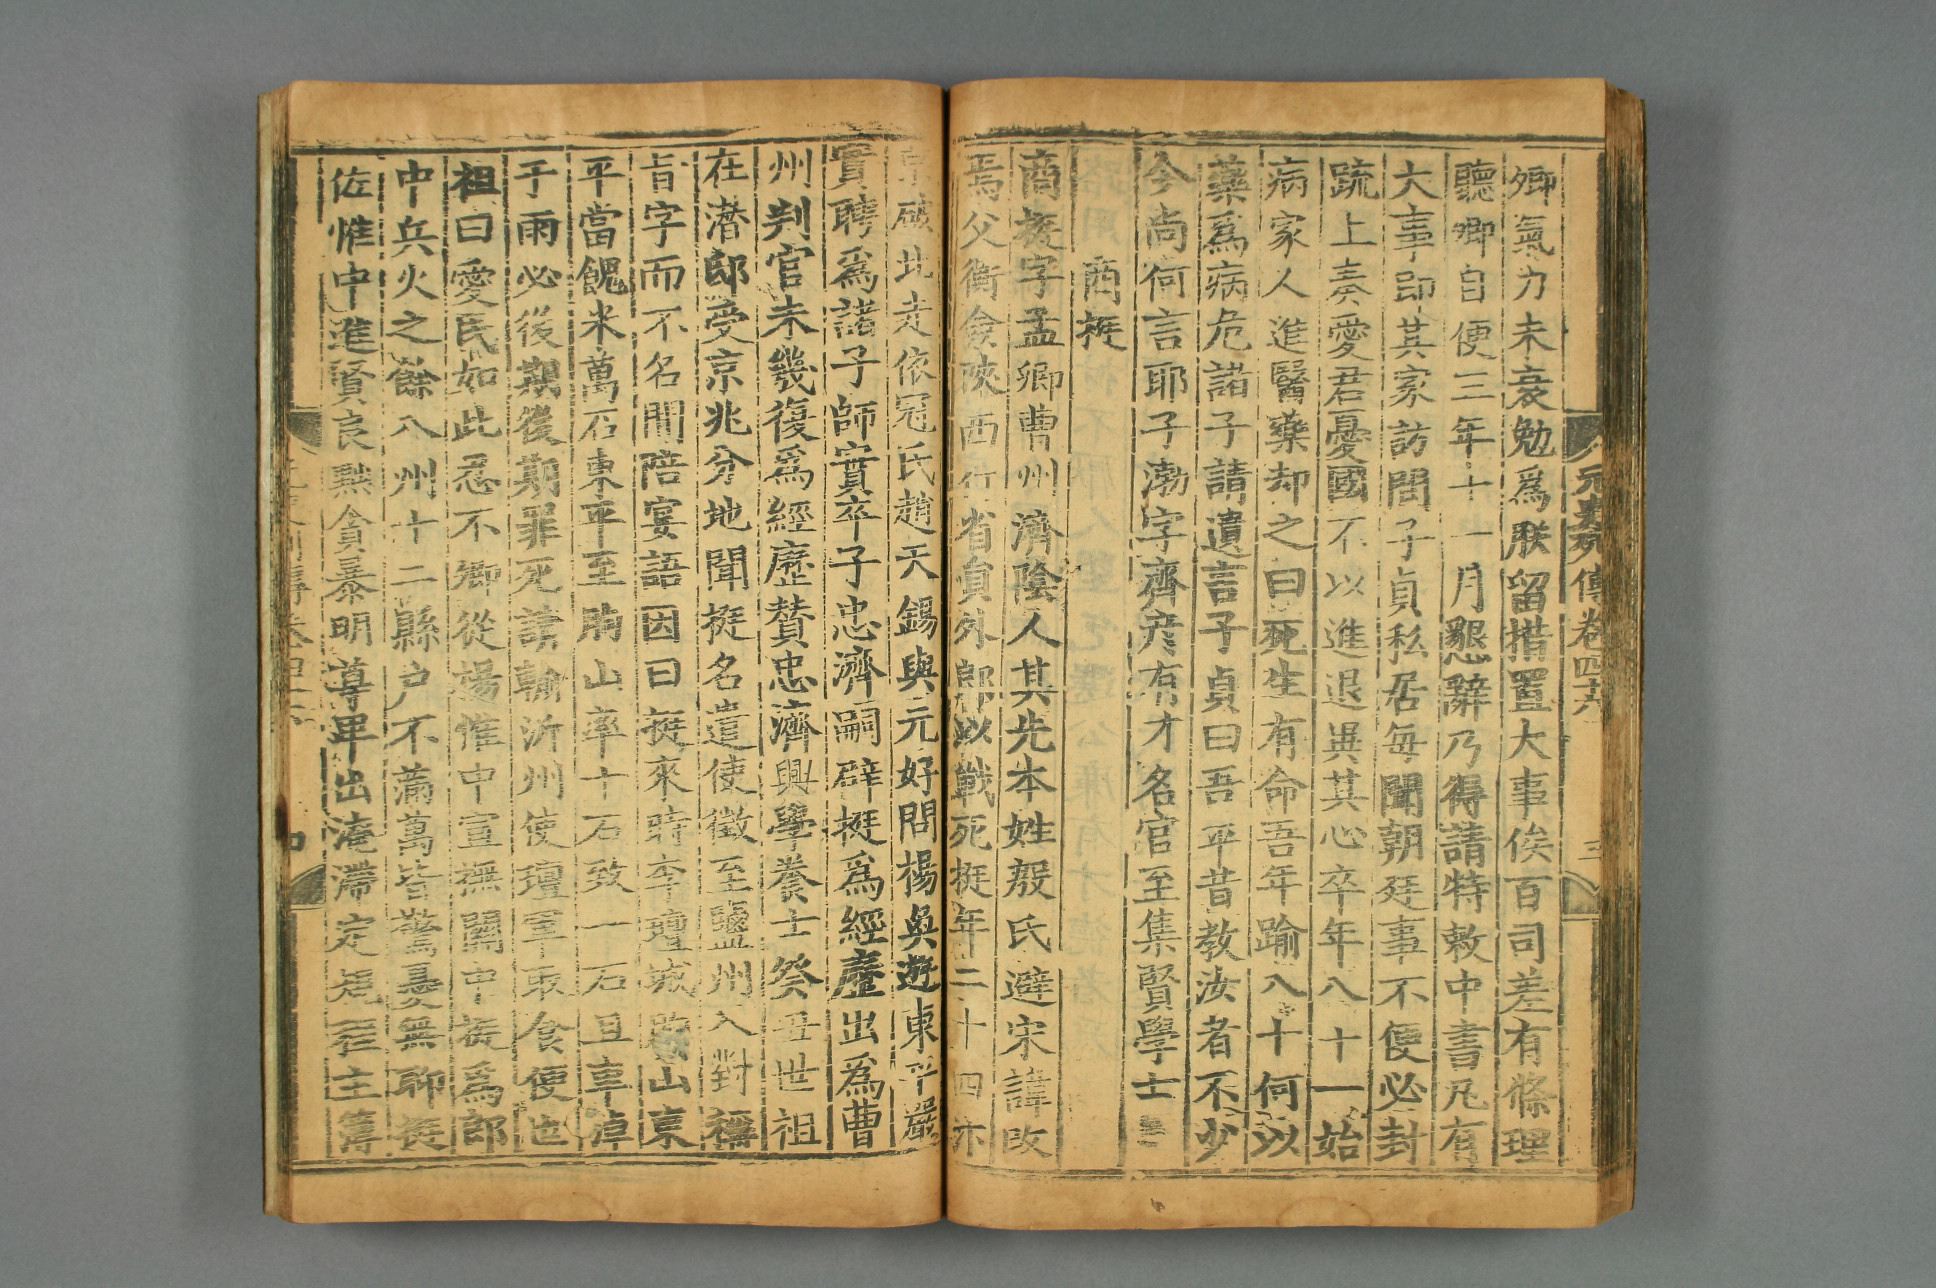 元史列傳卷四十六
三
卿氣力未衰勉爲朕留措置大事俟百司差有條理
聽卿自便三年十一月懇辭乃得請特敕中書凡有
大事即其家訪問子貞私居每聞朝廷事不便必封
疏上奏愛君憂國不以進退異其心卒年八十一始
病家人進醫藥却之曰死生有命吾年踰八十何以
藥爲病危諸子請遺言子貞曰吾平昔教汝者不少
今尚何言耶子渤字齊彦有才名官至集賢學士
商挺
商挺字孟卿曹州濟陰人其先本姓殷氏避宋諱改
焉父衡僉陝西行省員外郎以戰死挺年二十四亦
京破北走依冠氏趙天錫與元好問楊奐遊東平嚴
實聘爲諸子師實卒子忠濟嗣辟挺爲經歷出爲曹
州判官未幾復爲經歷贊忠濟興學養士癸丑世祖
在潛邸受京兆分地聞挺名遣使徵至鹽州入對稱
旨字而不名間陪宴語因曰挺來時李璮城朐山東
平當餽米萬石東平至朐山率十石致一石且車淖
于雨必後期後期罪死請輸沂州使璮軍取食便世
祖曰愛民如此忍不卿從楊惟中宣撫關中挺爲郎
中兵火之餘八州十二縣户不滿萬皆驚憂無聊挺
佐惟中進賢良黜貪暴明尊卑出淹滯定規程主簿
四